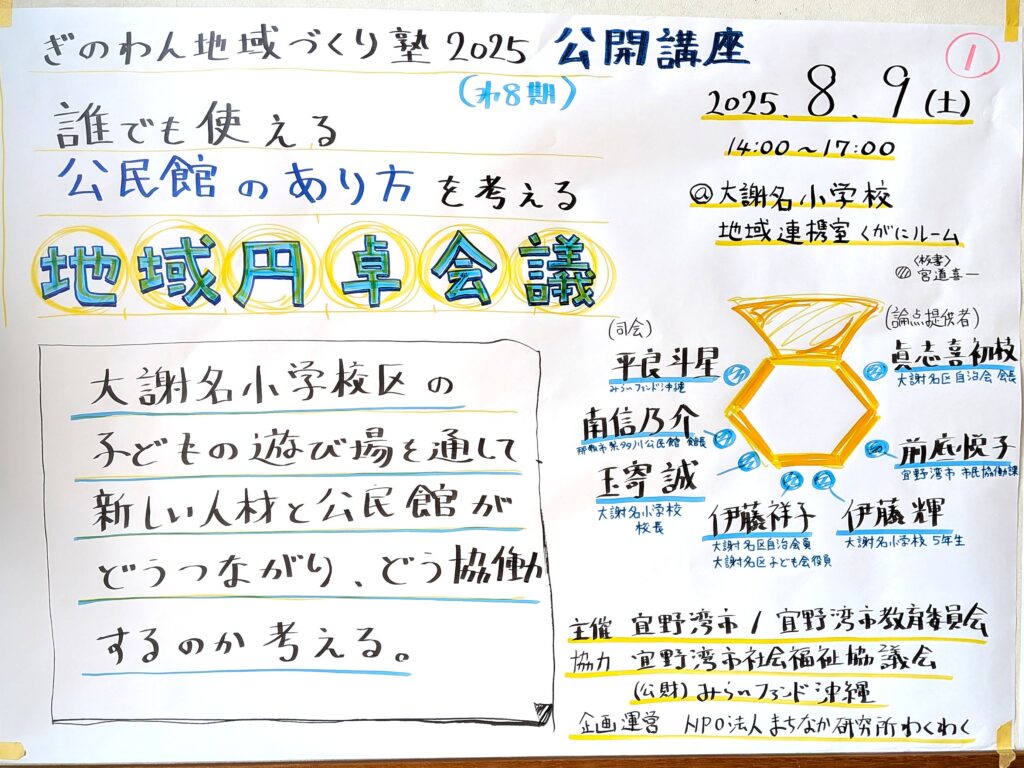 ぎのわん地域づくり塾2025 公開講座
①
(オ8期)
2025.8.9(土)
14:00〜17:00
誰でも使える
公民館のあり方を考える
地域円卓会議
@大謝名小学校
地域連携室くがにルーム
〈板書〉
宮道喜一
大謝名小学校区の
子どもの遊び場を通して
新しい人材と公民館が
どうつながり、どう協働
するのか考える。
(司会)
平良斗星
みらいファンド沖縄
南信乃介
那覇市繁多川公民館 館長
玉寄誠
大謝名小学校
校長
伊藤祥子
大謝名区自治会員
大謝名区子ども会役員
伊藤輝
大謝名小学校5年生
(論点提供者)
眞志喜初枝
大謝名区自治会 会長
前底悦子
宜野湾市 市民協働課
主催 宜野湾市/宜野湾市教育委員会
協力 宜野湾市社会福祉協議会
(公財)みらいファンド沖縄
企画運営 NPO法人まちなか研究所わくわく